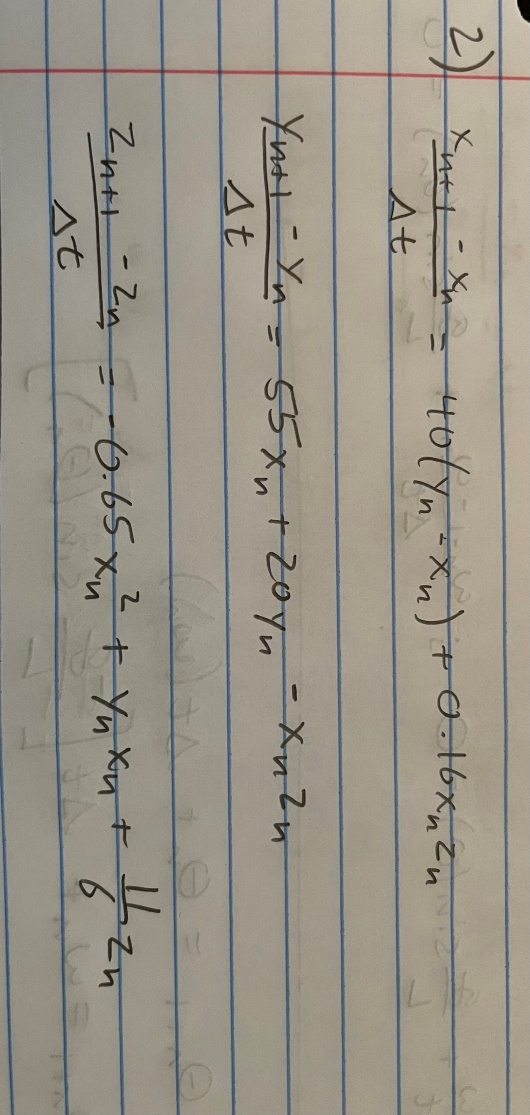 2) (x_{n+1} - x_n)/Δt = 40(y_n - x_n) + 0.16x_n z_n
(y_{n+1} - y_n)/Δt = 55x_n + 20y_n - x_n z_n
(z_{n+1} - z_n)/Δt = -0.65x_n^2 + y_n x_n + 11/6 z_n